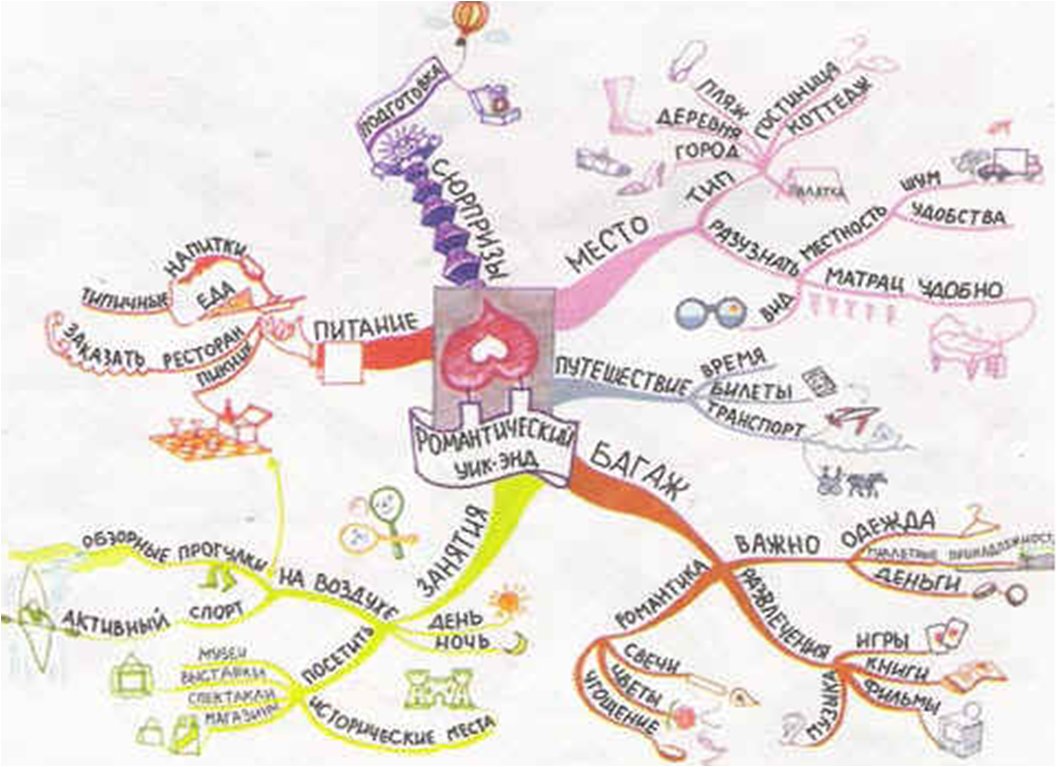 ПОДГОТОВКА
СЮРПРИЗЫ
МЕСТО
ТИП
ПЛЯЖ
ДЕРЕВНЯ
ГОРОД
ГОСТИНИЦА
КОТТЕДЖ
ПАЛАТКА
РАЗУЗНАТЬ
МЕСТНОСТЬ
ШУМ
УДОБСТВА
МАТРАЦ УДОБНО
ВИД
ПИТАНИЕ
НАПИТКИ
ТИПИЧНЫЕ
ЕДА
ЗАКАЗАТЬ РЕСТОРАН
ПИКНИК
ПУТЕШЕСТВИЕ
ВРЕМЯ
БИЛЕТЫ
ТРАНСПОРТ
РОМАНТИЧЕСКИЙ
УИК-ЭНД
БАГАЖ
ВАЖНО
ОДЕЖДА
ТУАЛЕТНЫЕ ПРИНАДЛЕЖНОСТ
ДЕНЬГИ
РОМАНТИКА
СВЕЧИ
ЦВЕТЫ
УГОЩЕНИЕ
РАЗВЛЕЧЕНИЯ
ИГРЫ
КНИГИ
ФИЛЬМЫ
МУЗЫКА
ЗАНЯТИЯ
НА ВОЗДУХЕ
ОБЗОРНЫЕ ПРОГУЛКИ
АКТИВНЫЙ СПОРТ
ДЕНЬ
НОЧЬ
ПОСЕТИТЬ
МУЗЕИ
ВЫСТАВКИ
СПЕКТАКЛИ
МАГАЗИНЫ
ИСТОРИЧЕСКИЕ МЕСТА